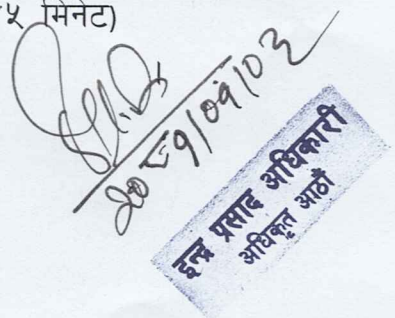 ५ मिनेट)
२०८१/०१/०३
इन्द्र प्रसाद अधिकारी
अधिकृत आठौं